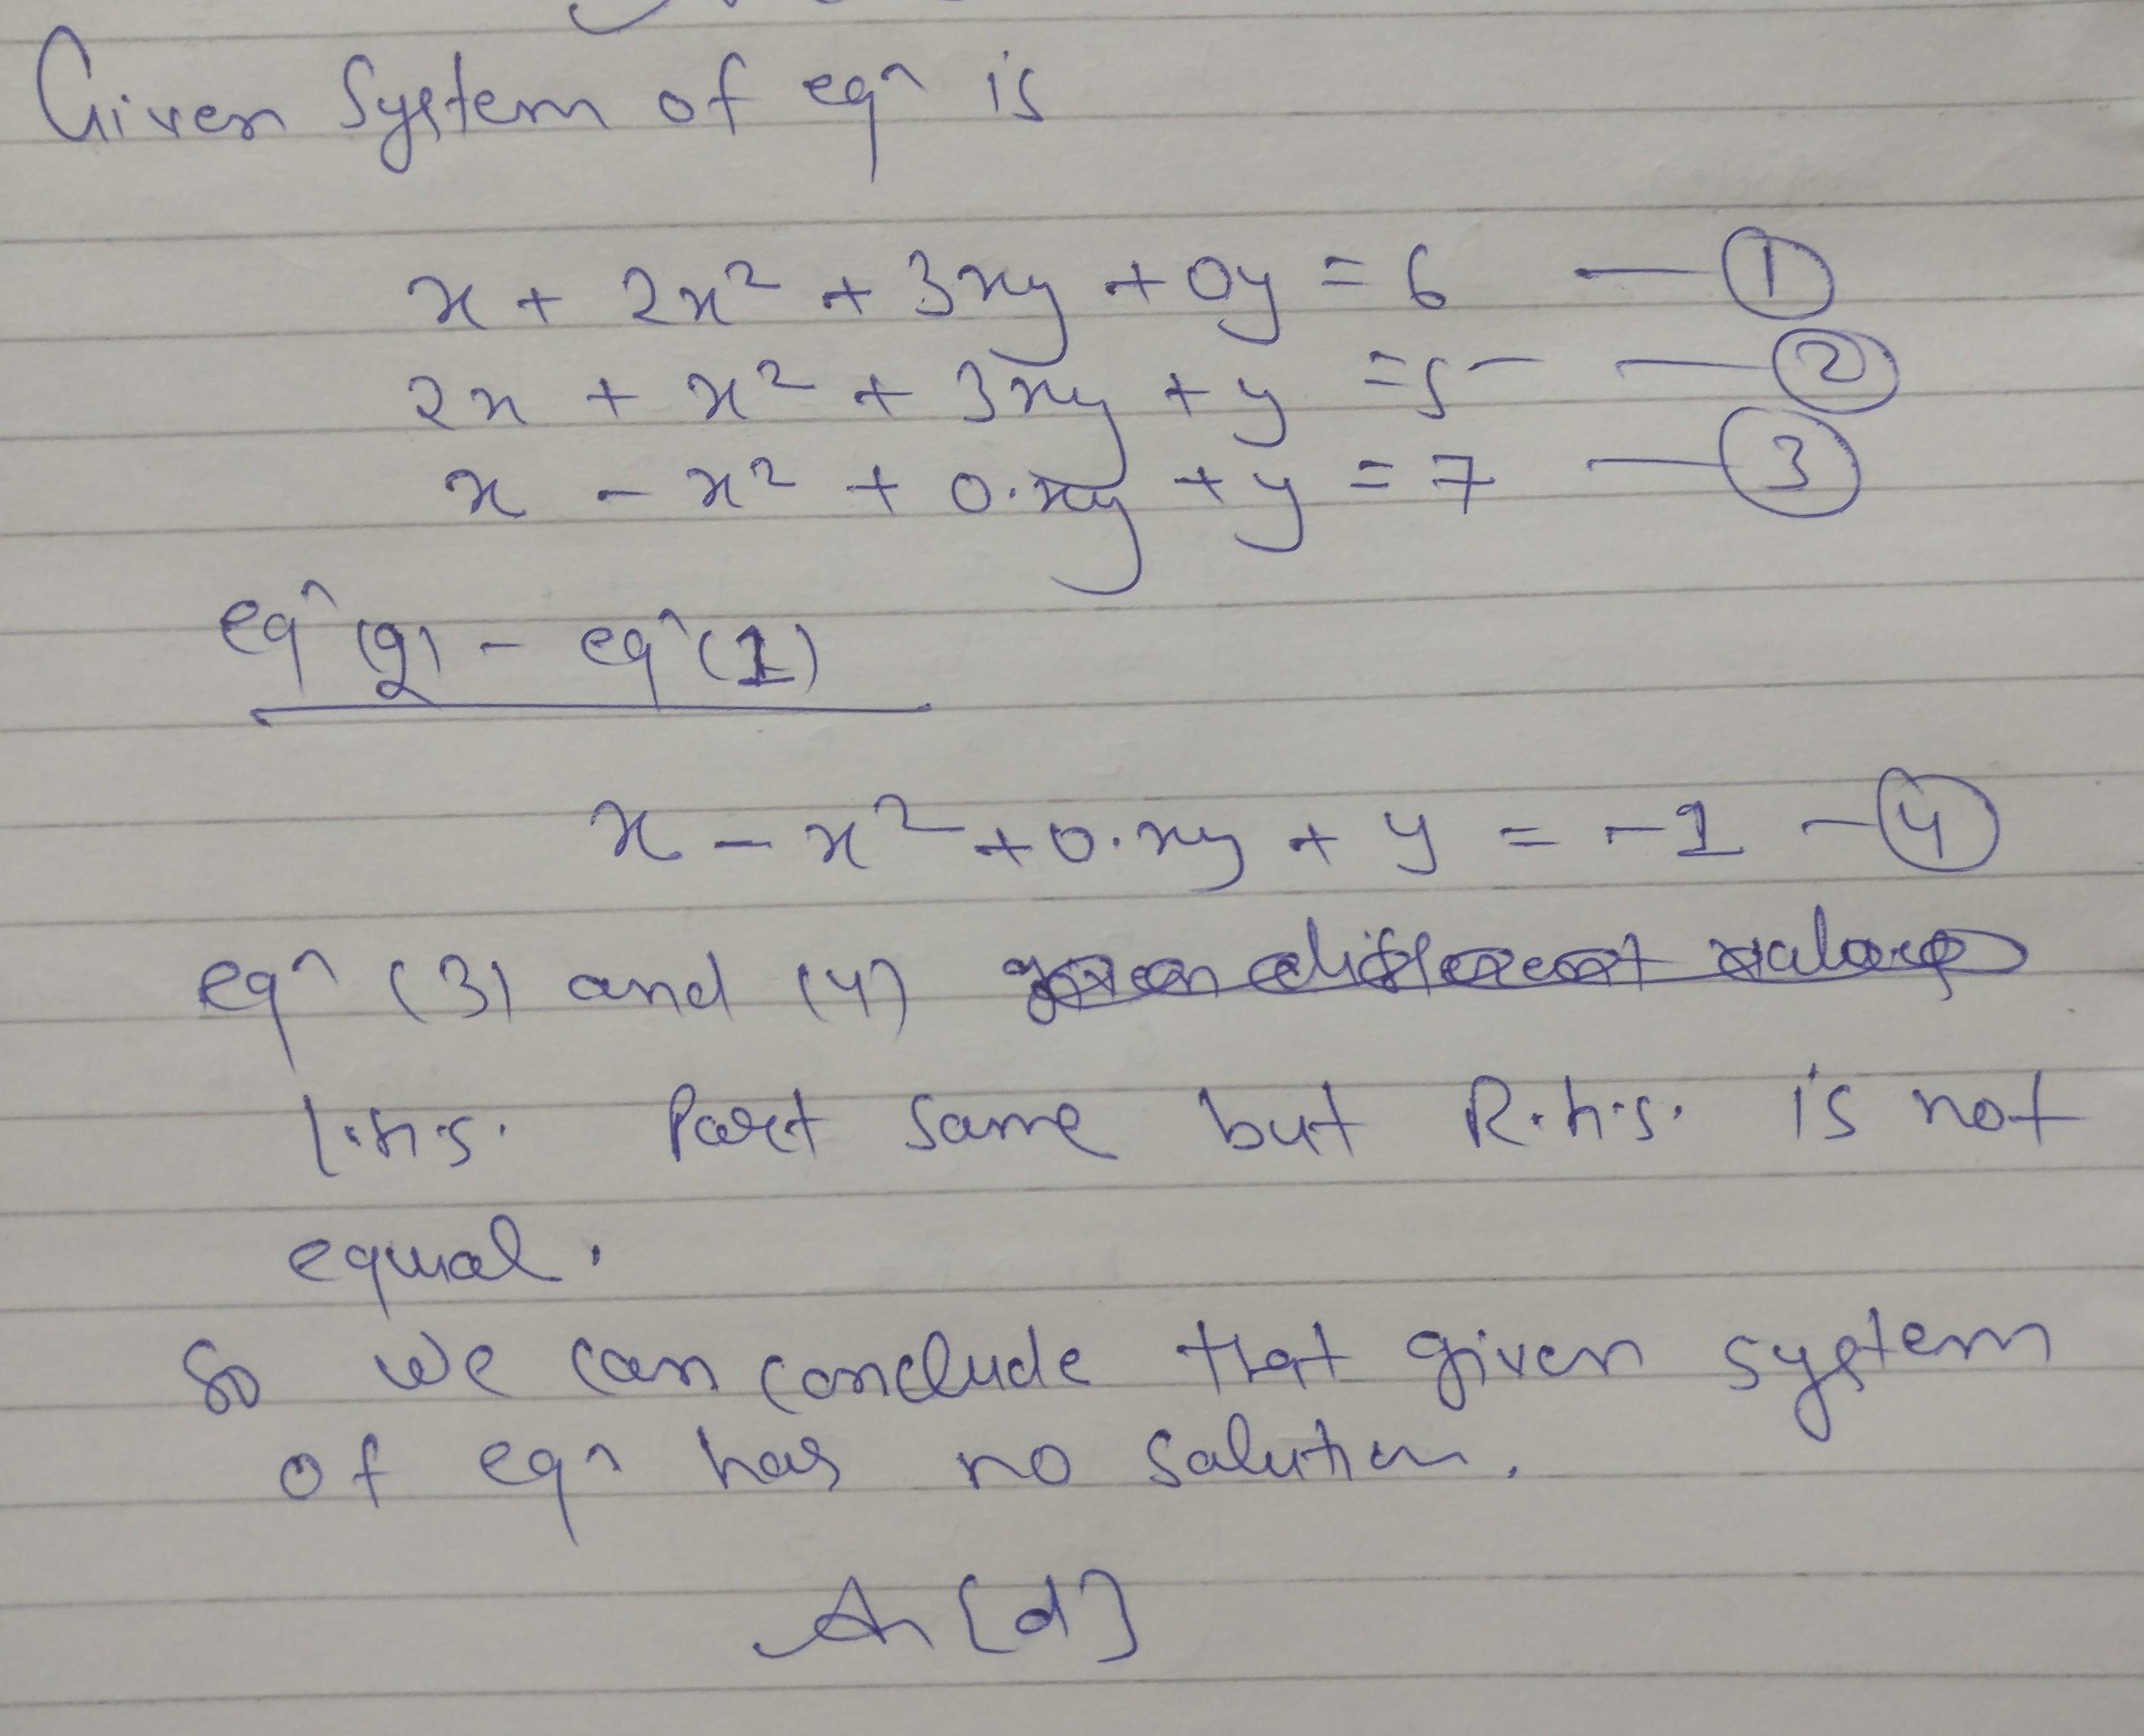 Given System of eqn is
x + 2x² + 3xy + 0y = 6 — ①
2x + x² + 3xy + y = 5 — ②
x - x² + 0.xy + y = 7 — ③
eqn (2) - eqn (1)
x - x² + 0.xy + y = -1 — ④
eqn (3) and (4)
l.h.s. Part same but R.h.s. is not
equal.
So we can conclude that given system
of eqn has no solution.
An [d]